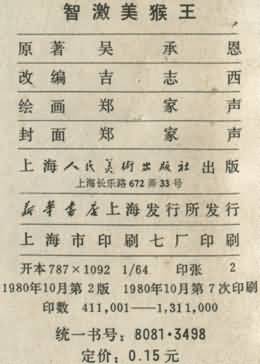 智激美猴王
原著 吴承恩
改编 吉志西
绘画 郑家声
封面 郑家声
上海人民美術出版社出版
上海长乐路672弄33号
新华书店上海发行所发行
上海市印刷七厂印刷
开本787×1092 1/64 印张 2
1980年10月第2版 1980年10月第7次印刷
印数 411,001—1,311,000
统一书号：8081·3498
定价：0.15元